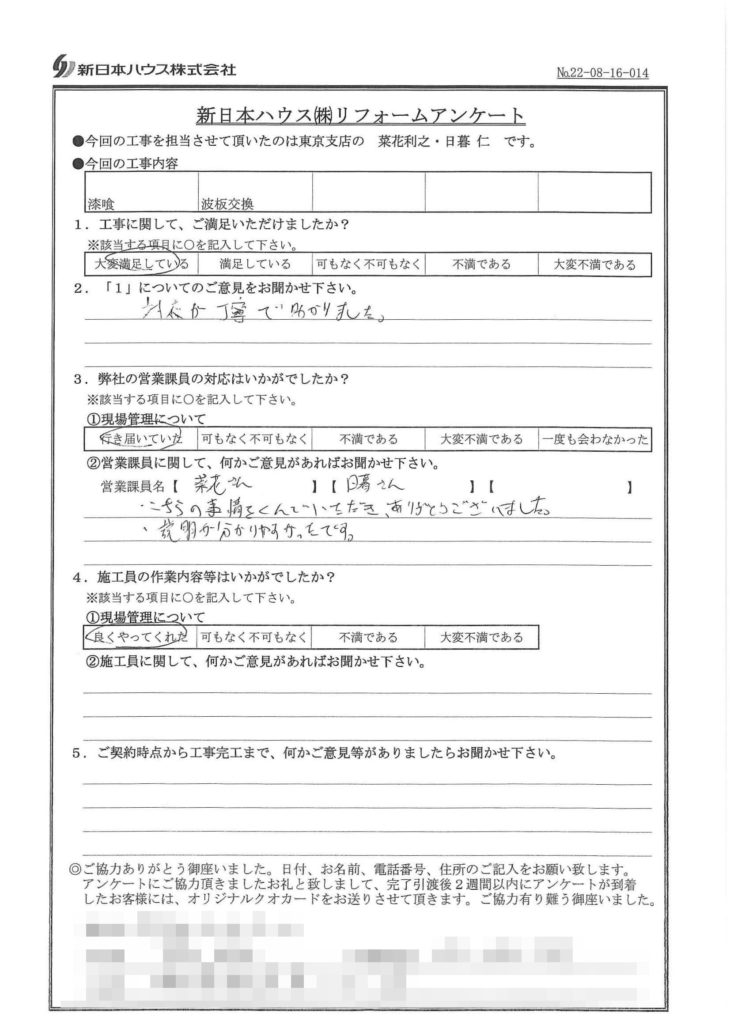 新日本ハウス株式会社
№22-08-16-014
新日本ハウス㈱リフォームアンケート
●今回の工事を担当させて頂いたのは東京支店の 菜花利之・日暮 仁 です。
●今回の工事内容
漆喰 波板交換
1．工事に関して、ご満足いただけましたか？
※該当する項目に○を記入して下さい。
大変満足している 満足している 可もなく不可もなく 不満である 大変不満である
2．「1」についてのご意見をお聞かせ下さい。
対応が丁寧で助かりました。
3．弊社の営業課員の対応はいかがでしたか？
※該当する項目に○を記入して下さい。
①現場管理について
行き届いていた 可もなく不可もなく 不満である 大変不満である 一度も会わなかった
②営業課員に関して、何かご意見があればお聞かせ下さい。
営業課員名【 菜花さん 】【 日暮さん 】【 】
・こちらの事情をくんでいただき、ありがとうございました。
・説明が分かりやすかったです。
4．施工員の作業内容等はいかがでしたか？
※該当する項目に○を記入して下さい。
①現場管理について
良くやってくれた 可もなく不可もなく 不満である 大変不満である
②施工員に関して、何かご意見があればお聞かせ下さい。
5．ご契約時点から工事完工まで、何かご意見等がありましたらお聞かせ下さい。
◎ご協力ありがとう御座いました。日付、お名前、電話番号、住所のご記入をお願い致します。
アンケートにご協力頂きましたお礼と致しまして、完了引渡後２週間以内にアンケートが到着
したお客様には、オリジナルクオカードをお送りさせて頂きます。ご協力有り難う御座いました。